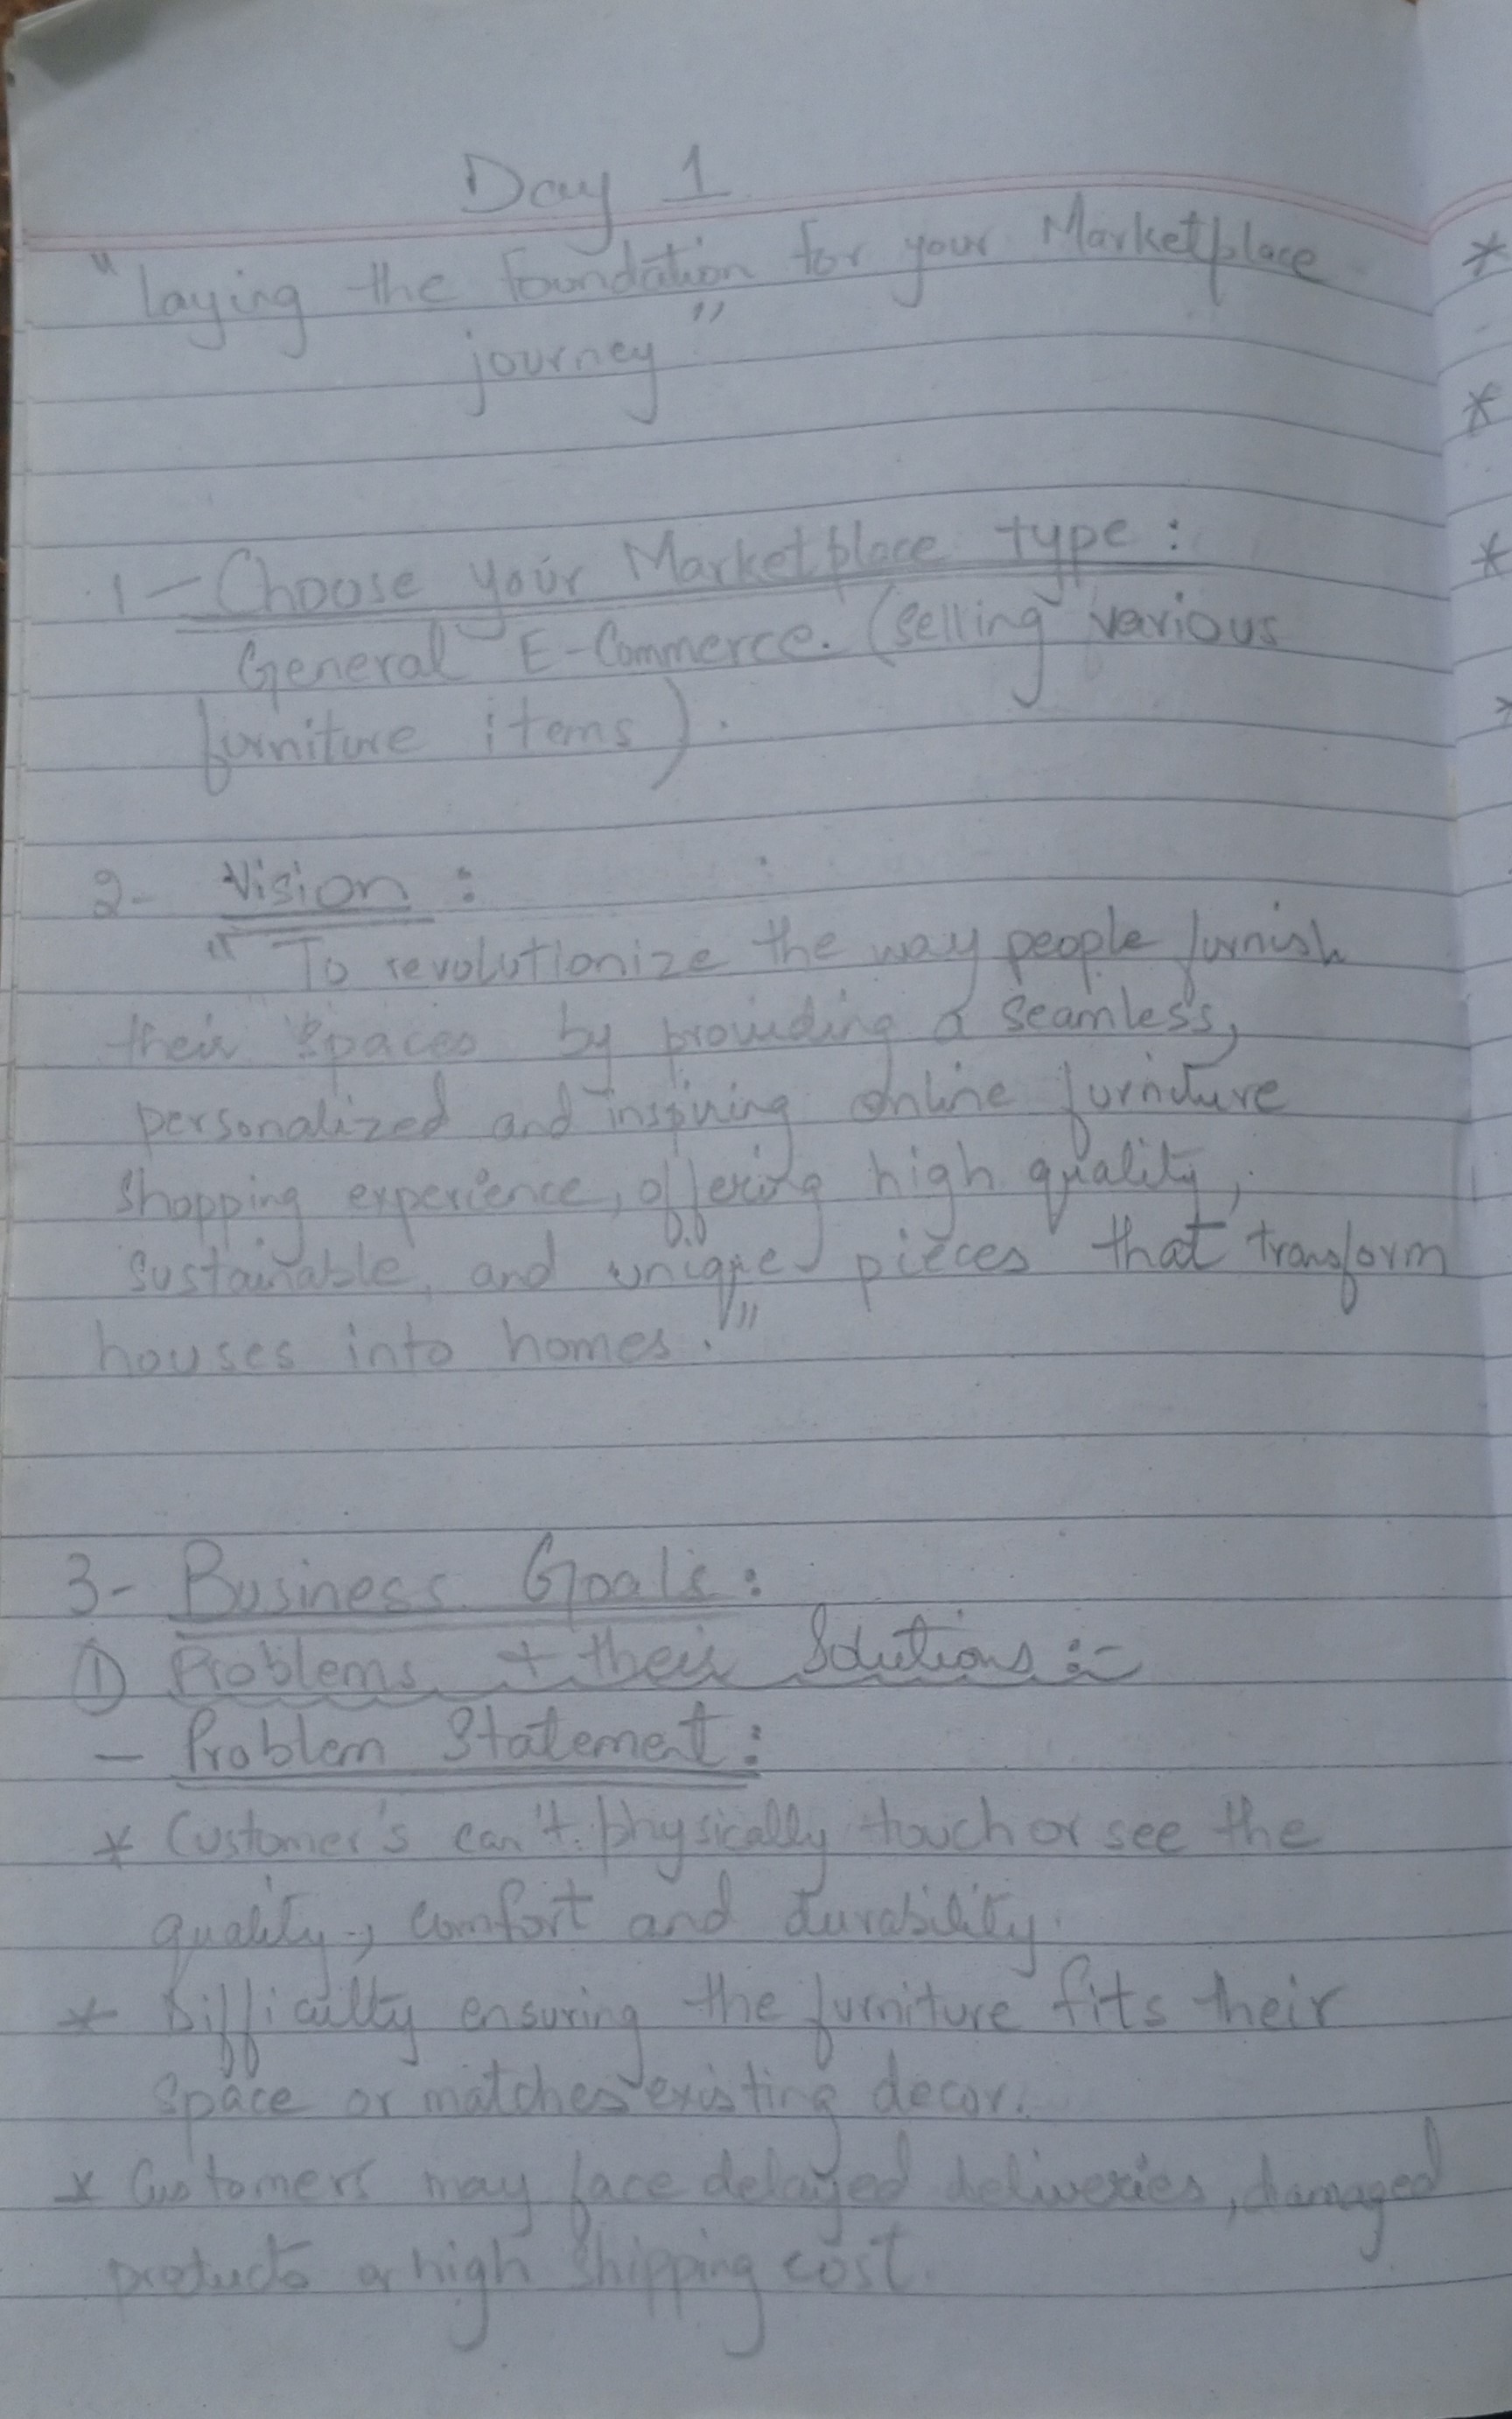 Day 1
"laying the foundation for your Marketplace
journey"
1- Choose your Marketplace type :
General E-Commerce. (selling various
furniture items).
2- Vision :
"To revolutionize the way people furnish
their spaces by providing a seamless,
personalized and inspiring online furniture
shopping experience, offering high quality,
sustainable, and unique pieces that transform
houses into homes."
3- Business Goals :
① Problems + their Solutions :-
- Problem Statement :
* Customer's can't physically touch or see the
quality, comfort and durability.
* Difficulty ensuring the furniture fits their
space or matches existing decor.
* Customers may face delayed deliveries, damaged
products or high shipping cost.
*
*
*